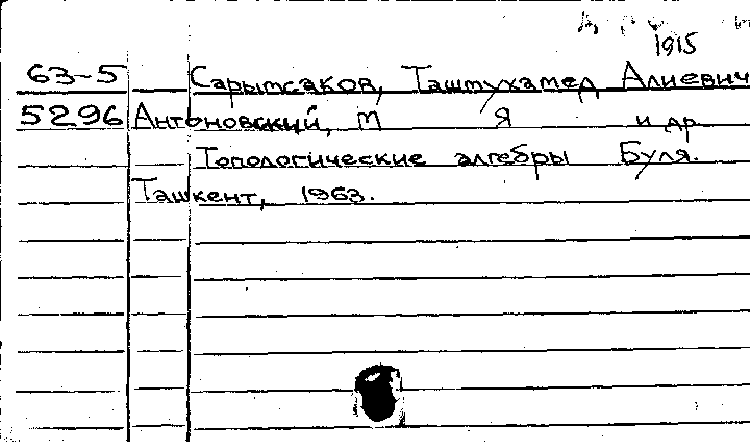 1915
63-5 Сарымсаков, Ташмухамед Алиевич
5296 Антоновский, М Я и др
Топологические алгебры Буля.
Ташкент, 1963.